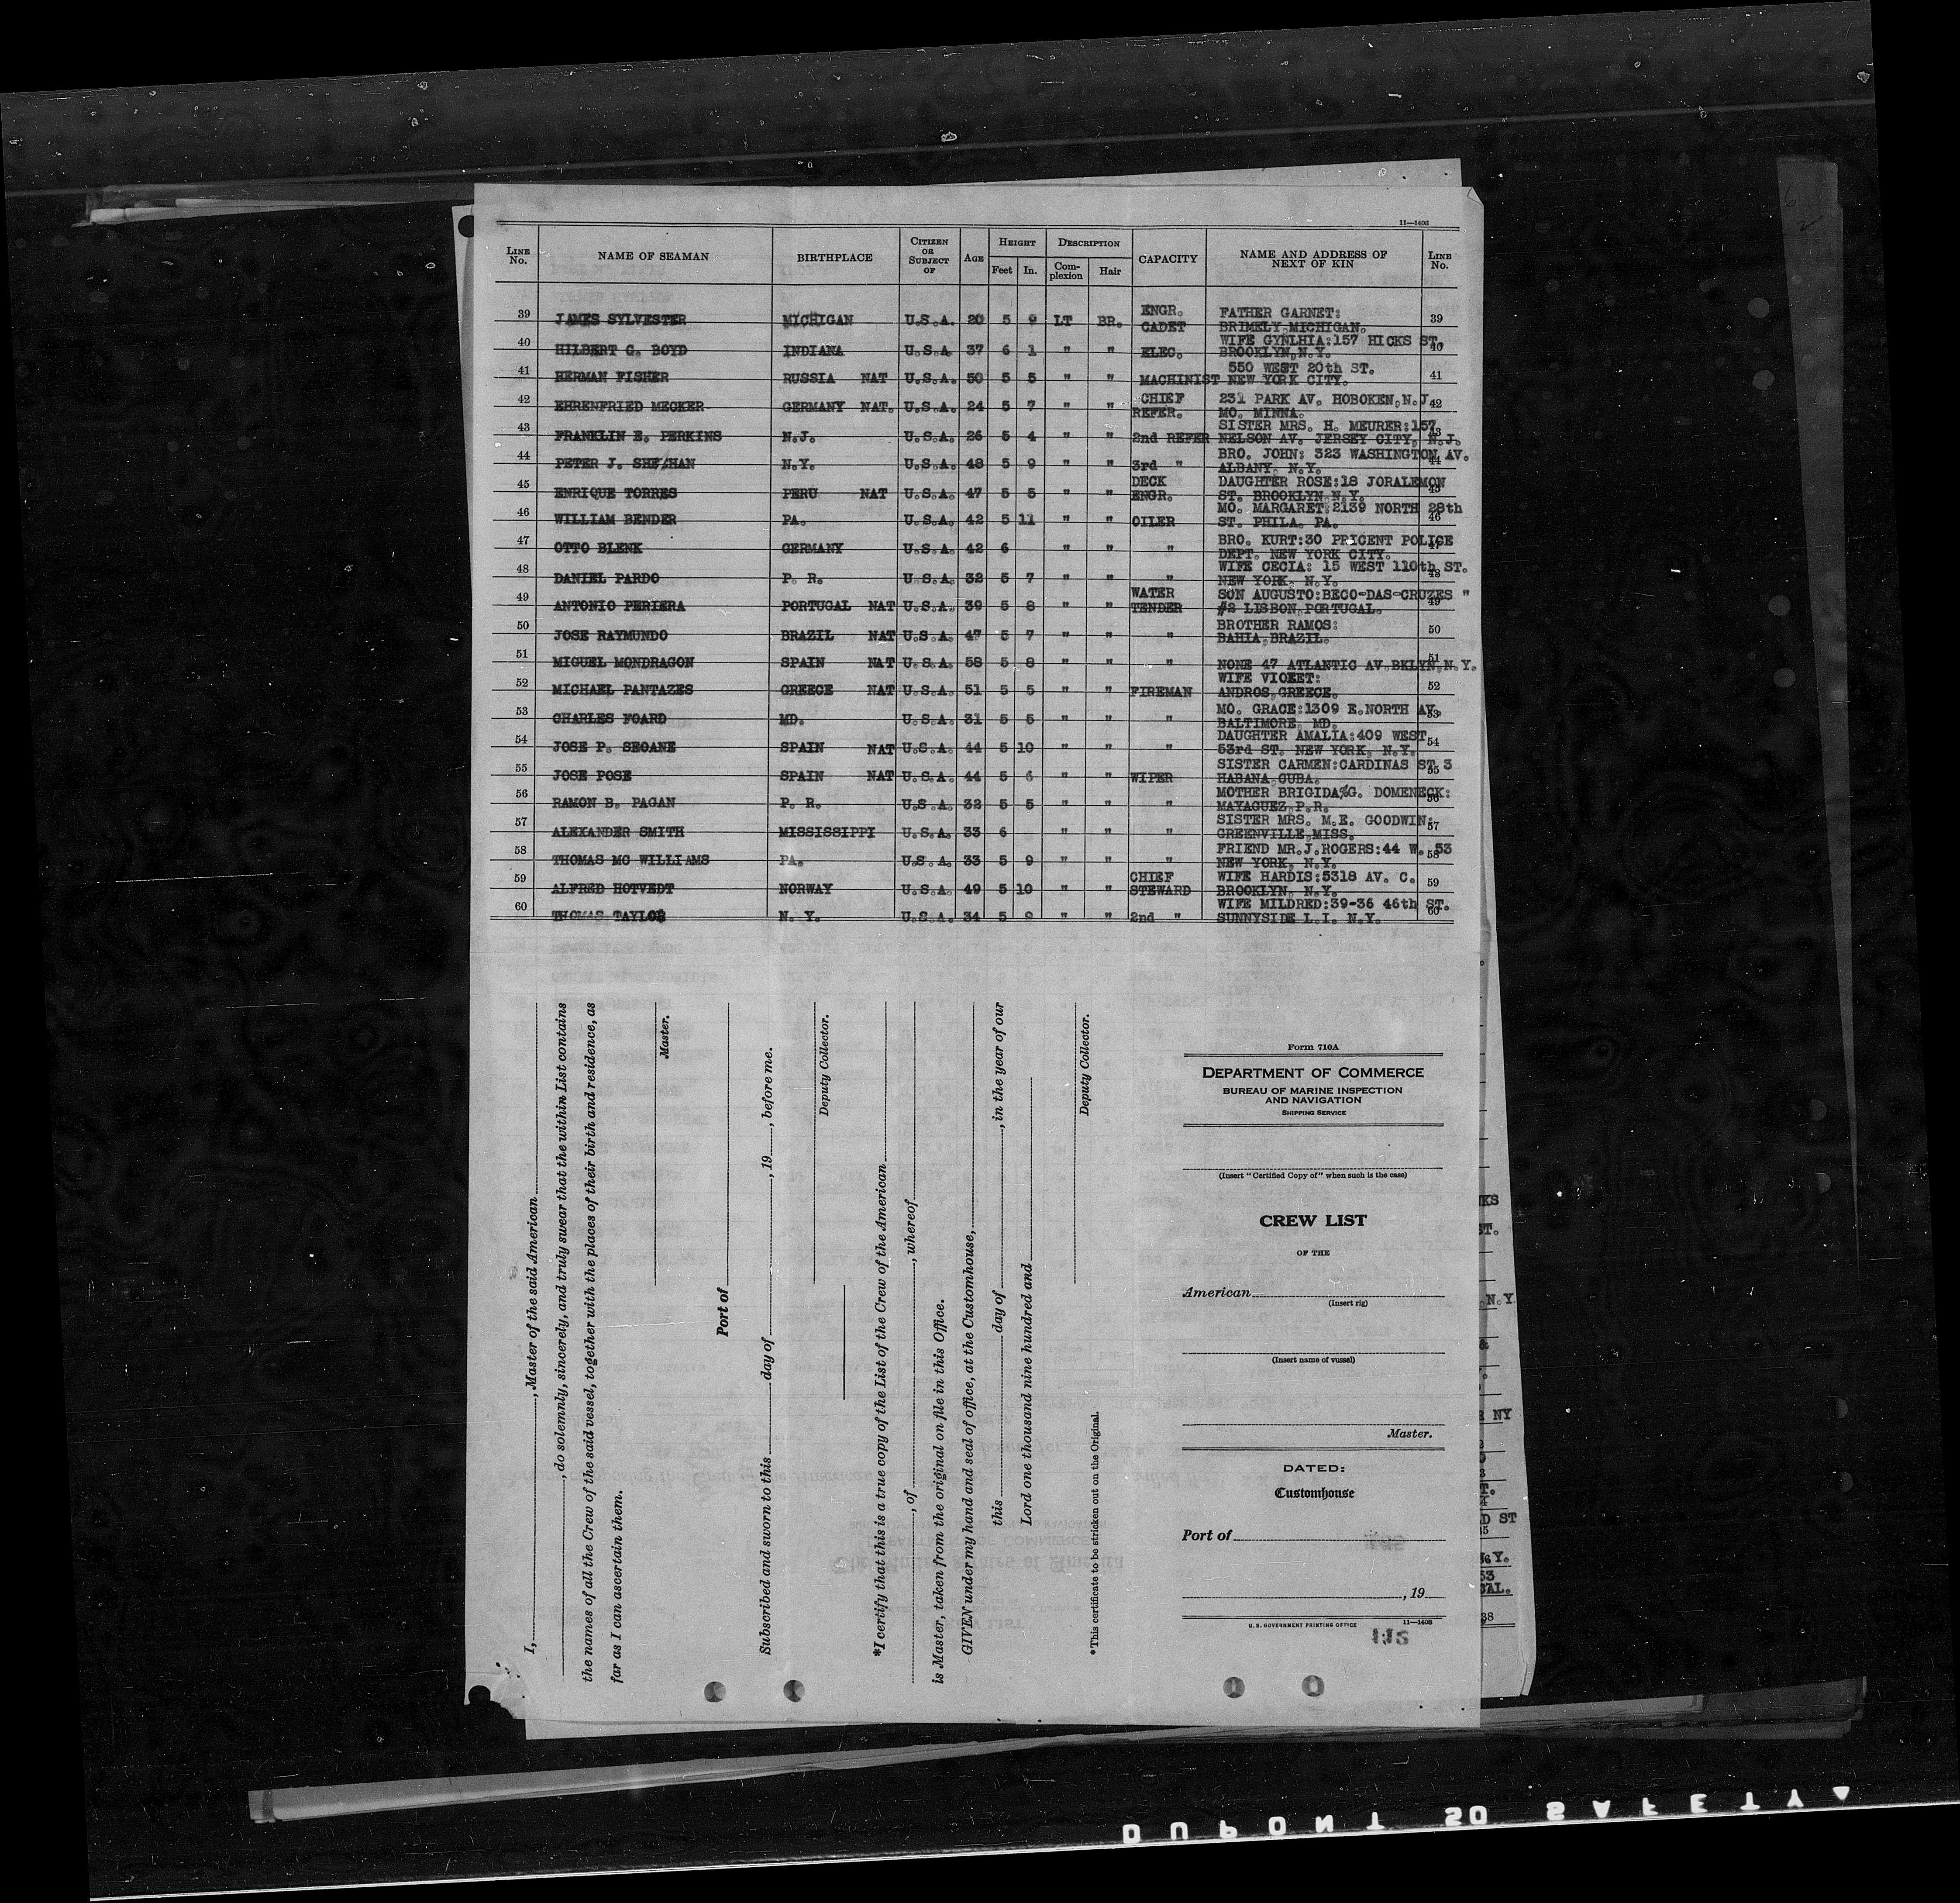 11—1408
LINE No. NAME OF SEAMAN BIRTHPLACE CITIZEN OR SUBJECT OF AGE HEIGHT Feet In. DESCRIPTION Complexion Hair CAPACITY NAME AND ADDRESS OF NEXT OF KIN LINE No.
39 JAMES SYLVESTER MICHIGAN U.S.A. 20 5 9 LT BR. ENGR. CADET FATHER GARNET: BRIMELY, MICHIGAN. 39
40 HILBERT G. BOYD INDIANA U.S.A 37 6 1 " " ELEC. WIFE GYNLHIA:157 HICKS ST. BROOKLYN,N.Y. 40
41 HERMAN FISHER RUSSIA NAT U.S.A. 50 5 5 " " MACHINIST 550 WEST 20th ST. NEW YORK CITY. 41
42 EHRENFRIED MECKER GERMANY NAT. U.S.A. 24 5 7 " " CHIEF REFER. 231 PARK AV. HOBOKEN,N.J. MO. MINNA. 42
43 FRANKLIN E. PERKINS N.J. U.S.A. 26 5 4 " " 2nd REFER SISTER MRS. H. MEURER:157 NELSON AV. JERSEY CITY, N.J. 43
44 PETER J. SHEEHAN N.Y. U.S.A. 48 5 9 " " 3rd " BRO. JOHN: 323 WASHINGTON AV. ALBANY, N.Y. 44
45 ENRIQUE TORRES PERU NAT U.S.A. 47 5 5 " " DECK ENGR. DAUGHTER ROSE:18 JORALEMON ST. BROOKLYN,N.Y. 45
46 WILLIAM BENDER PA. U.S.A. 42 5 11 " " OILER MO. MARGARET:2139 NORTH 28th ST. PHILA. PA. 46
47 OTTO BLENK GERMANY U.S.A. 42 6 " " " BRO. KURT:30 PRICENT POLICE DEPT. NEW YORK CITY. 47
48 DANIEL PARDO P. R. U.S.A. 32 5 7 " " " WIFE CECIA: 15 WEST 110th ST. NEW YORK, N.Y. 48
49 ANTONIO PERIERA PORTUGAL NAT U.S.A. 39 5 8 " " WATER TENDER SON AUGUSTO:BECO-DAS-CRUZES " #2 LISBON,PORTUGAL. 49
50 JOSE RAYMUNDO BRAZIL NAT U.S.A. 47 5 7 " " " BROTHER RAMOS: BAHIA,BRAZIL. 50
51 MIGUEL MONDRAGON SPAIN NAT U.S.A. 58 5 8 " " " NONE 47 ATLANTIC AV.BKLYN,N.Y. 51
52 MICHAEL PANTAZES GREECE NAT U.S.A. 51 5 5 " " FIREMAN WIFE VIOKET: ANDROS,GREECE. 52
53 CHARLES FOARD MD. U.S.A. 31 5 5 " " " MO. GRACE:1309 E.NORTH AV. BALTIMORE, MD. 53
54 JOSE P. SEOANE SPAIN NAT U.S.A. 44 5 10 " " " DAUGHTER AMALIA:409 WEST 53rd ST. NEW YORK, N.Y. 54
55 JOSE POSE SPAIN NAT U.S.A. 44 5 6 " " WIPER SISTER CARMEN:CARDINAS ST.3 HABANA,CUBA. 55
56 RAMON B. PAGAN P. R. U.S.A. 32 5 5 " " " MOTHER BRIGIDA G. DOMENECK: MAYAGUEZ,P.R. 56
57 ALEXANDER SMITH MISSISSIPPI U.S.A. 33 6 " " " SISTER MRS. M.E. GOODWIN: GREENVILLE,MISS. 57
58 THOMAS MC WILLIAMS PA. U.S.A. 33 5 9 " " " FRIEND MR.J.ROGERS:44 W. 53 NEW YORK, N.Y. 58
59 ALFRED HOTVEDT NORWAY U.S.A. 49 5 10 " " CHIEF STEWARD WIFE HARDIS:5318 AV. C. BROOKLYN, N.Y. 59
60 THOMAS TAYLOR N. Y. U.S.A. 34 5 9 " " 2nd " WIFE MILDRED:39-36 46th ST. SUNNYSIDE L.I. N.Y. 60
I, , Master of the said American
, do solemnly, sincerely, and truly swear that the within List contains
the names of all the Crew of the said vessel, together with the places of their birth and residence, as
far as I can ascertain them.
Master.
Port of
Subscribed and sworn to this day of , 19 , before me.
Deputy Collector.
*I certify that this is a true copy of the List of the Crew of the American
, of , whereof
is Master, taken from the original on file in this Office.
GIVEN under my hand and seal of office, at the Customhouse,
this day of , in the year of our
Lord one thousand nine hundred and
Deputy Collector.
*This certificate to be stricken out on the Original.
Form 710A
DEPARTMENT OF COMMERCE
BUREAU OF MARINE INSPECTION
AND NAVIGATION
SHIPPING SERVICE
(Insert "Certified Copy of" when such is the case)
CREW LIST
OF THE
American
(Insert rig)
(Insert name of vussel)
Master.
DATED:
Customhouse
Port of
, 19
U. S. GOVERNMENT PRINTING OFFICE 11—1408
DUPONT SAFETY